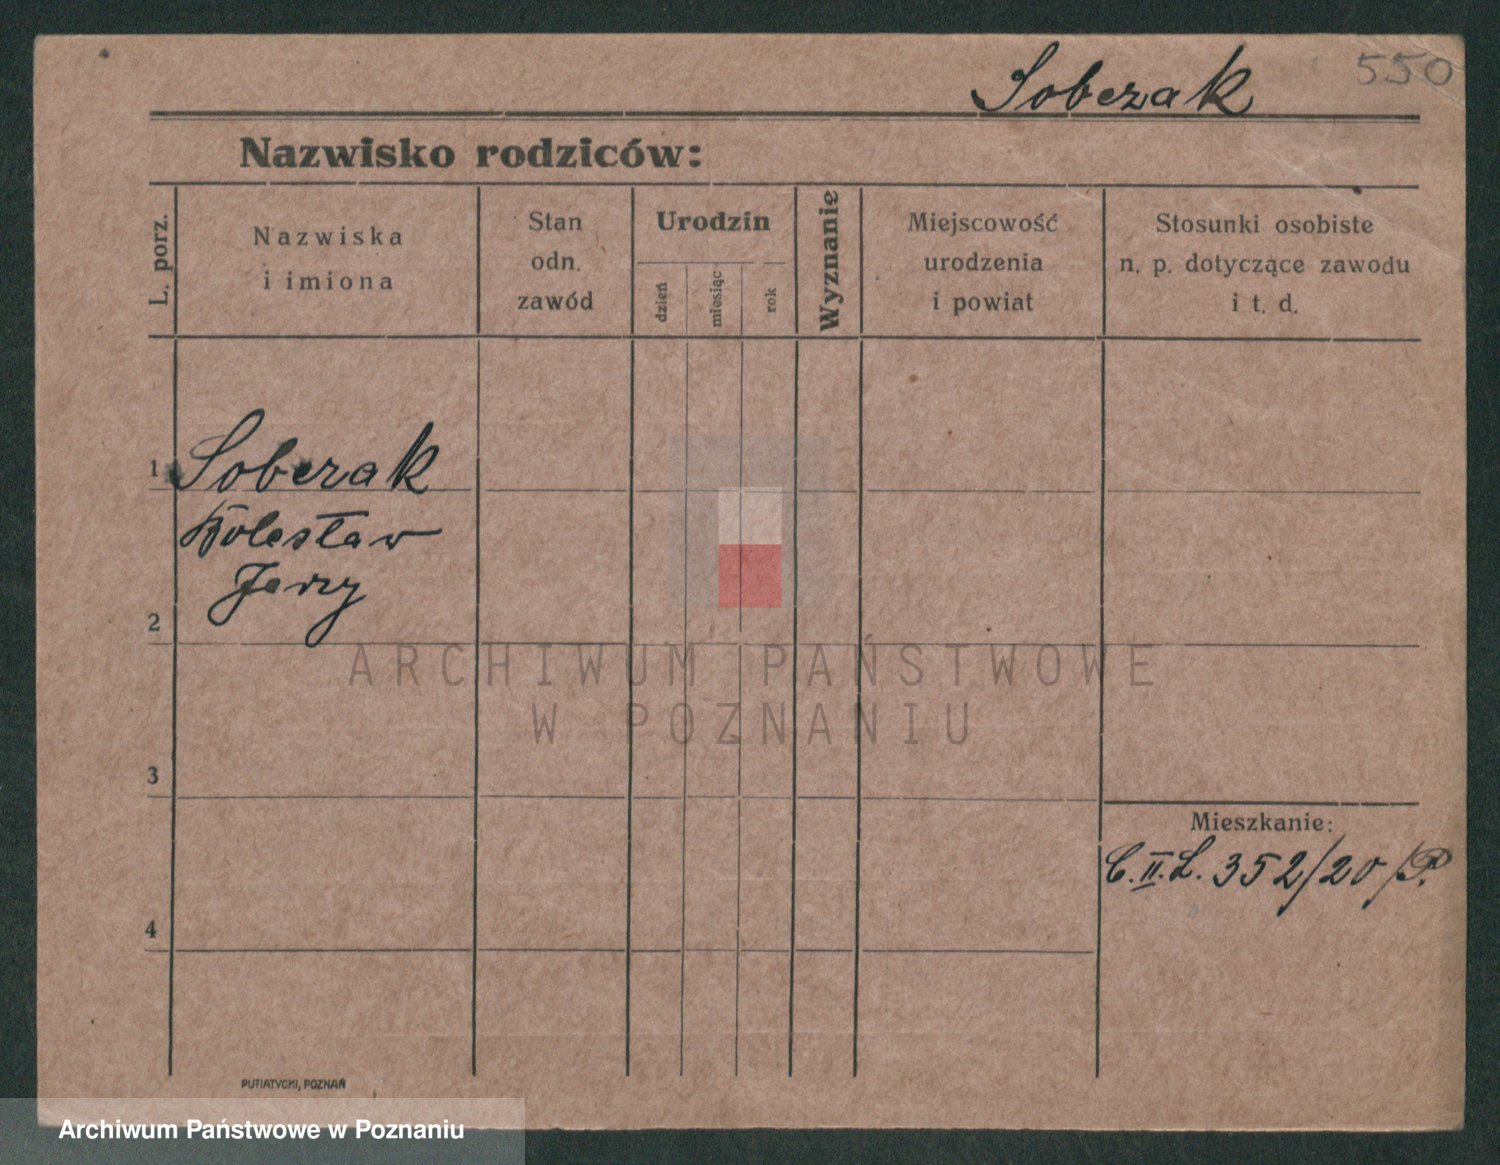 Sobczak
550
Nazwisko rodziców:
L. porz.
Nazwiska
i imiona
Stan
odn.
zawód
Urodzin
dzień
miesiąc
rok
Wyznanie
Miejscowość
urodzenia
i powiat
Stosunki osobiste
n. p. dotyczące zawodu
i t. d.
1
Sobczak
Bolesław
Jerzy
2
3
4
Mieszkanie:
C. II. L. 352/20/P.
ARCHIWUM PAŃSTWOWE
W POZNANIU
PUTIATYCKI, POZNAŃ
Archiwum Państwowe w Poznaniu